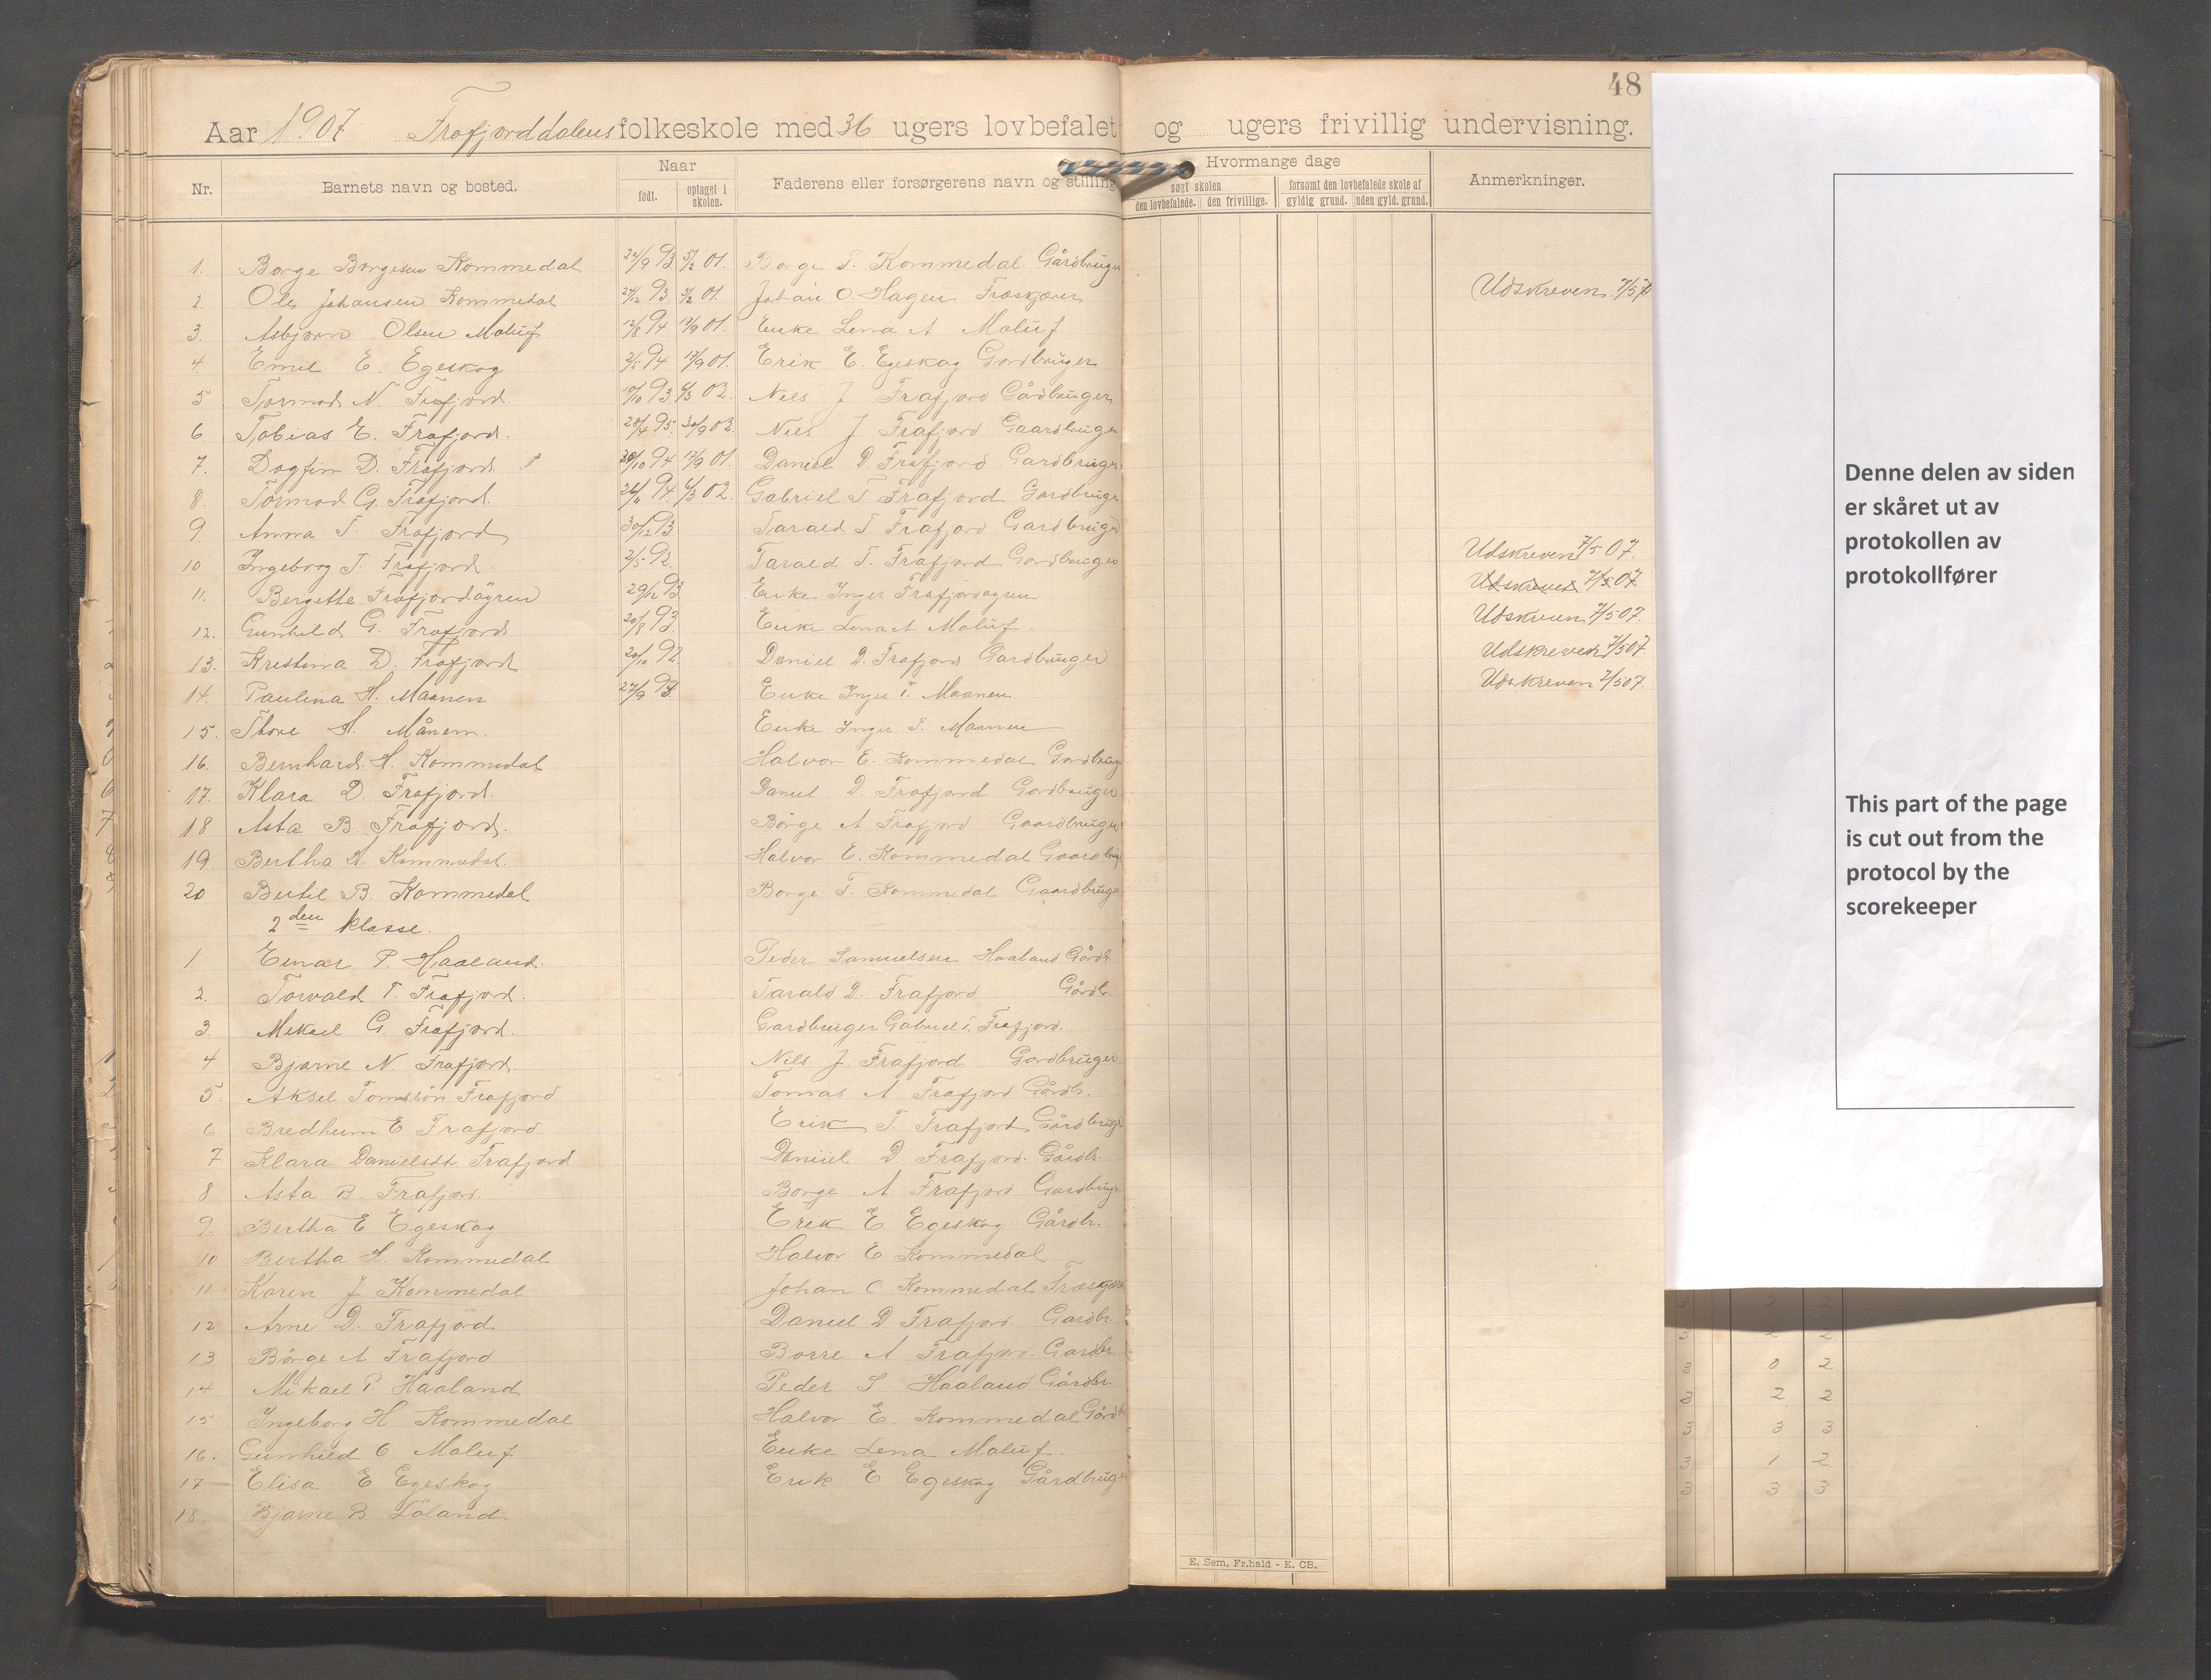 48
Aar 1907 Frafjorddalens folkeskole med 36 ugers lovbefalet og ugers frivillig undervisning.
Nr. Barnets navn og bosted. Naar født. optaget i skolen. Faderens eller forsørgerens navn og stilling Hvormange dage søgt skolen den lovbefalede. den frivillige. forsømt den lovbefalede skole af gyldig grund. uden gyld. grund. Anmerkninger.
1. Børge Børgesen Kommedal 24/9 93 5/2 01. Børge T. Kommedal Gårdbruger
2. Ole Johansen Kommedal 27/12 93. 5/2 01. Johan O. Hagen Træskjærer Udskreven 7/5 07
3. Asbjørn Olsen Maluf 12/8 94 17/9 01. Enke Lena A Maluf
4. Emil E. Egeskog 2/5 94 17/9 01. Erik E. Egeskog Gardbruger
5 Tormod N. Frafjord. 10/10 93 6/3 02. Niels J Frafjord Gårdbruger
6 Tobias E. Frafjord. 28/4 95. 30/9 02. Niels J Frafjord Gaardbruger
7. Dagfin D. Frafjord. 30/10 94 17/9 01. Daniel D. Frafjord Gardbruger
8. Tormod G. Frafjord. 26/11 94 6/3 02. Gabriel T Frafjord Gardbruger
9 Anna T. Frafjord 30/12 93 Tarald T Frafjord Gardbruger
10 Ingeborg T. Frafjord. 2/5 92. Tarald T. Frafjord Gardbruger Udskreven 7/5 07.
11. Bergette Frafjordøyren 29/12 93 Enke Inger Frafjordøyren Udskreven 7/5 07
12. Gunhild G. Frafjord 20/8 93. Enke Lena A Maluf Udskreven 7/5 07.
13. Kristina D. Frafjord 20/10 92 Daniel D. Frafjord Gardbruger Udskreven 7/5 07
14. Paulina H. Maanen 27/9 93 Enke Inger T. Maanen Udskreven 7/5 07.
15. Thore H. Månen. Enke Inger T. Maanen
16. Bernhard H. Kommedal Halvor E. Kommedal Gardbrug
17. Klara D. Frafjord. Daniel D. Frafjord Gardbruger
18 Asta B. Frafjord. Børge A Frafjord Gaardbruger
19 Bertha H. Kommedal. Halvor E. Kommedal Gaardbrug
20 Bertil B. Kommedal Børge T. Kommedal Gaardbruger
2den klasse.
1. Einar P. Haaland. Peder Samuelsen Haaland Gårdb
2. Torvald T. Frafjord. Tarald D. Frafjord Gårdb.
3. Mikael G. Frafjord. Gardbruger Gabriel T. Frafjord.
4 Bjarne N. Frafjord. Nils J Frafjord Gardbruger
5. Aksel Tomassøn Frafjord Tomas A Frafjord Gårdb.
6 Bredheim E Frafjord Erik T. Frafjord Gårdbrug
7 Klara Danielsdt. Frafjord Daniel D Frafjord. Gårdb.
8 Asta B. Frafjord. Børge A Frafjord Gardbrug
9. Bertha E Egeskog Erik E Egeskog Gårdbr.
10 Bertha H. Kommedal Halvor E Kommedal
11 Karen J Kommedal Johan O Kommedal Træskjærer
12 Arne D. Frafjord Daniel D Frafjord. Gardbr
13 Børge A Frafjord Børre A Frafjord. Gardbr
14 Mikael P Haaland Peder S Haaland Gårdbr
15 Ingeborg H Kommedal Halvor E. Kommedal Gårdb
16. Gunhild O Maluf Enke Lena Maluf.
17 Elisa E Egeskog Erik E Egeskog Gårdbruger
18. Bjarne B Løland
E. Sem, Fr.hald - E. CB.
Denne delen av siden
er skåret ut av
protokollen av
protokollfører
This part of the page
is cut out from the
protocol by the
scorekeeper
3 2 2
3 2 2
3 0 2
3 2 2
3 3 3
3 1 2
3 3 3